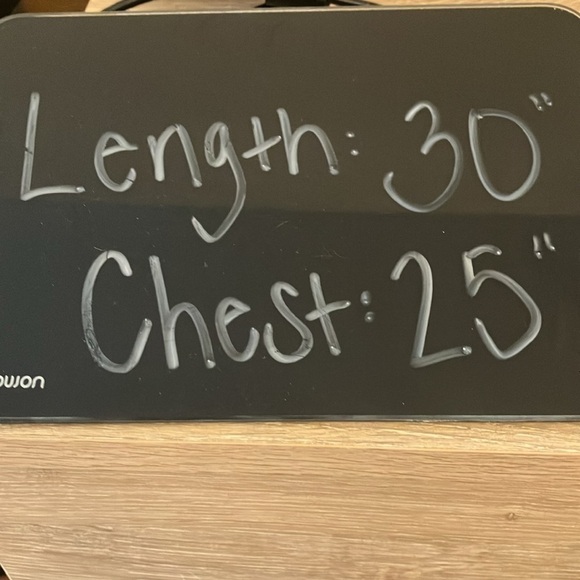 Length: 30"
Chest: 25"